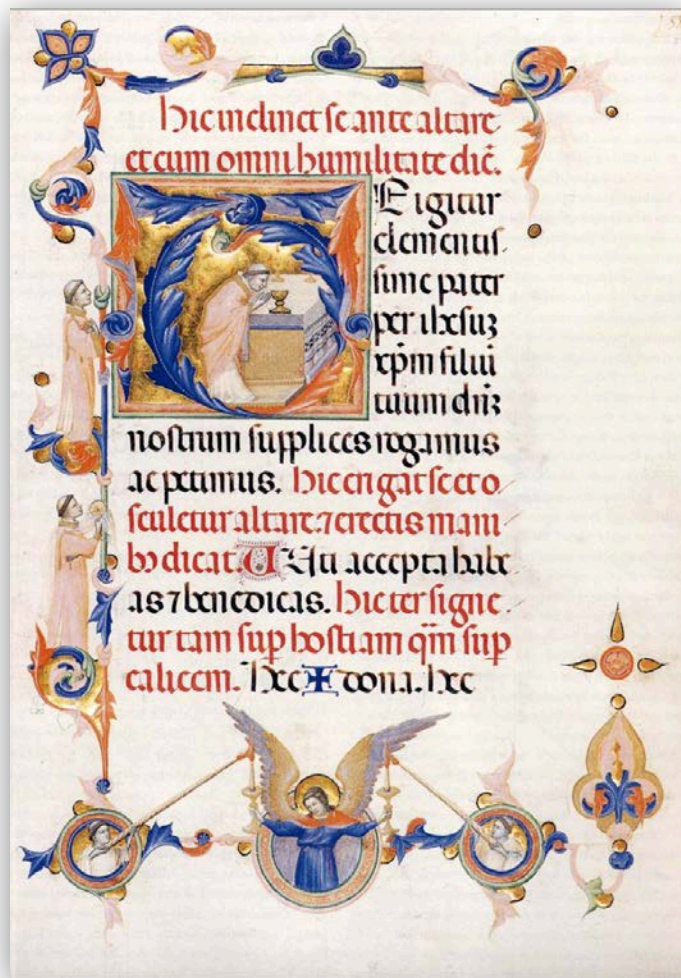 hic inclinet se ante altare
et cum omni humilitate dic̄.
TE igitur
clementis-
sime pater
per ihesuȝ
xp̄m filiū
tuum dn̄ȝ
nostrum supplices rogamus
ac petimus. hic erigat se et o-
sculetur altare ⁊ erectis mani-
bȝ dicat. U Uti accepta habe
as ⁊ benedicas. hic ter signe-
tur tam sup̱ hostiam qm̄ sup̱
calicem. hec ✠ dona. hec